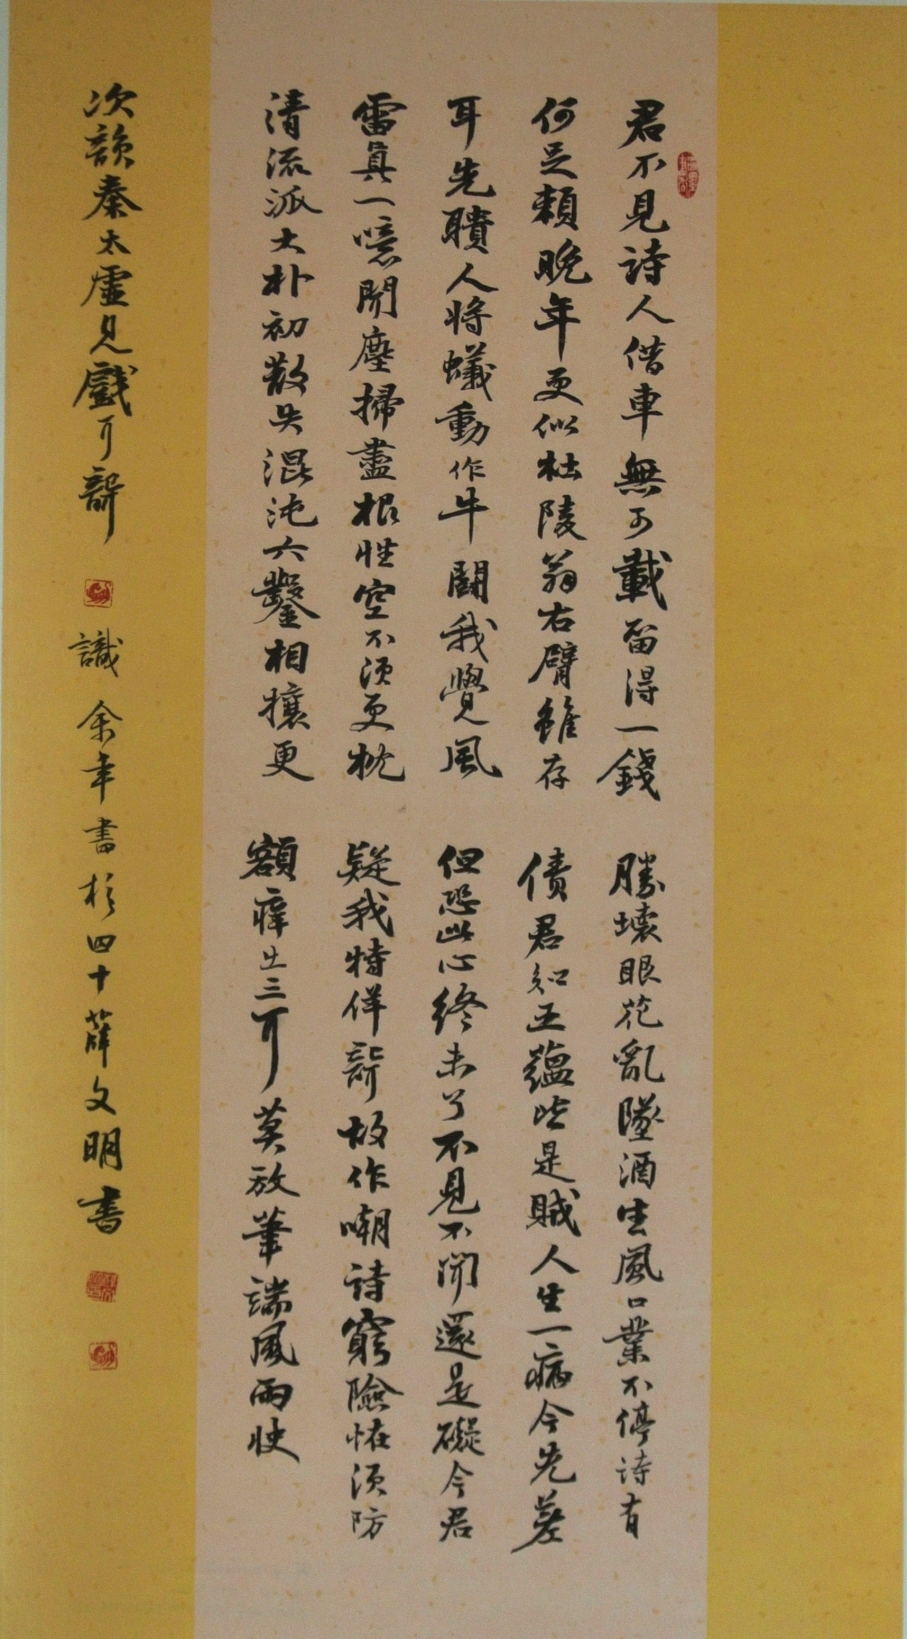 君不見詩人借車無可載留得一錢
何足賴晚年更似杜陵翁右臂雖存
耳先聵人將蟻動作牛鬭我覺風
雷真一噫聞塵掃盡根性空不須更枕
清流派大朴初散失混沌六鑿相攘更
勝壞眼花亂墜酒生風口業不停詩有
債君知五蘊皆是賊人生一病今先差
但恐此心終未了不見不聞還是礙今君
疑我特佯聾故作嘲詩窮險怪須防
額痒出三耳莫放筆端風雨快
次韻秦太虛見戲耳聾
識余年書於四十薛文明書